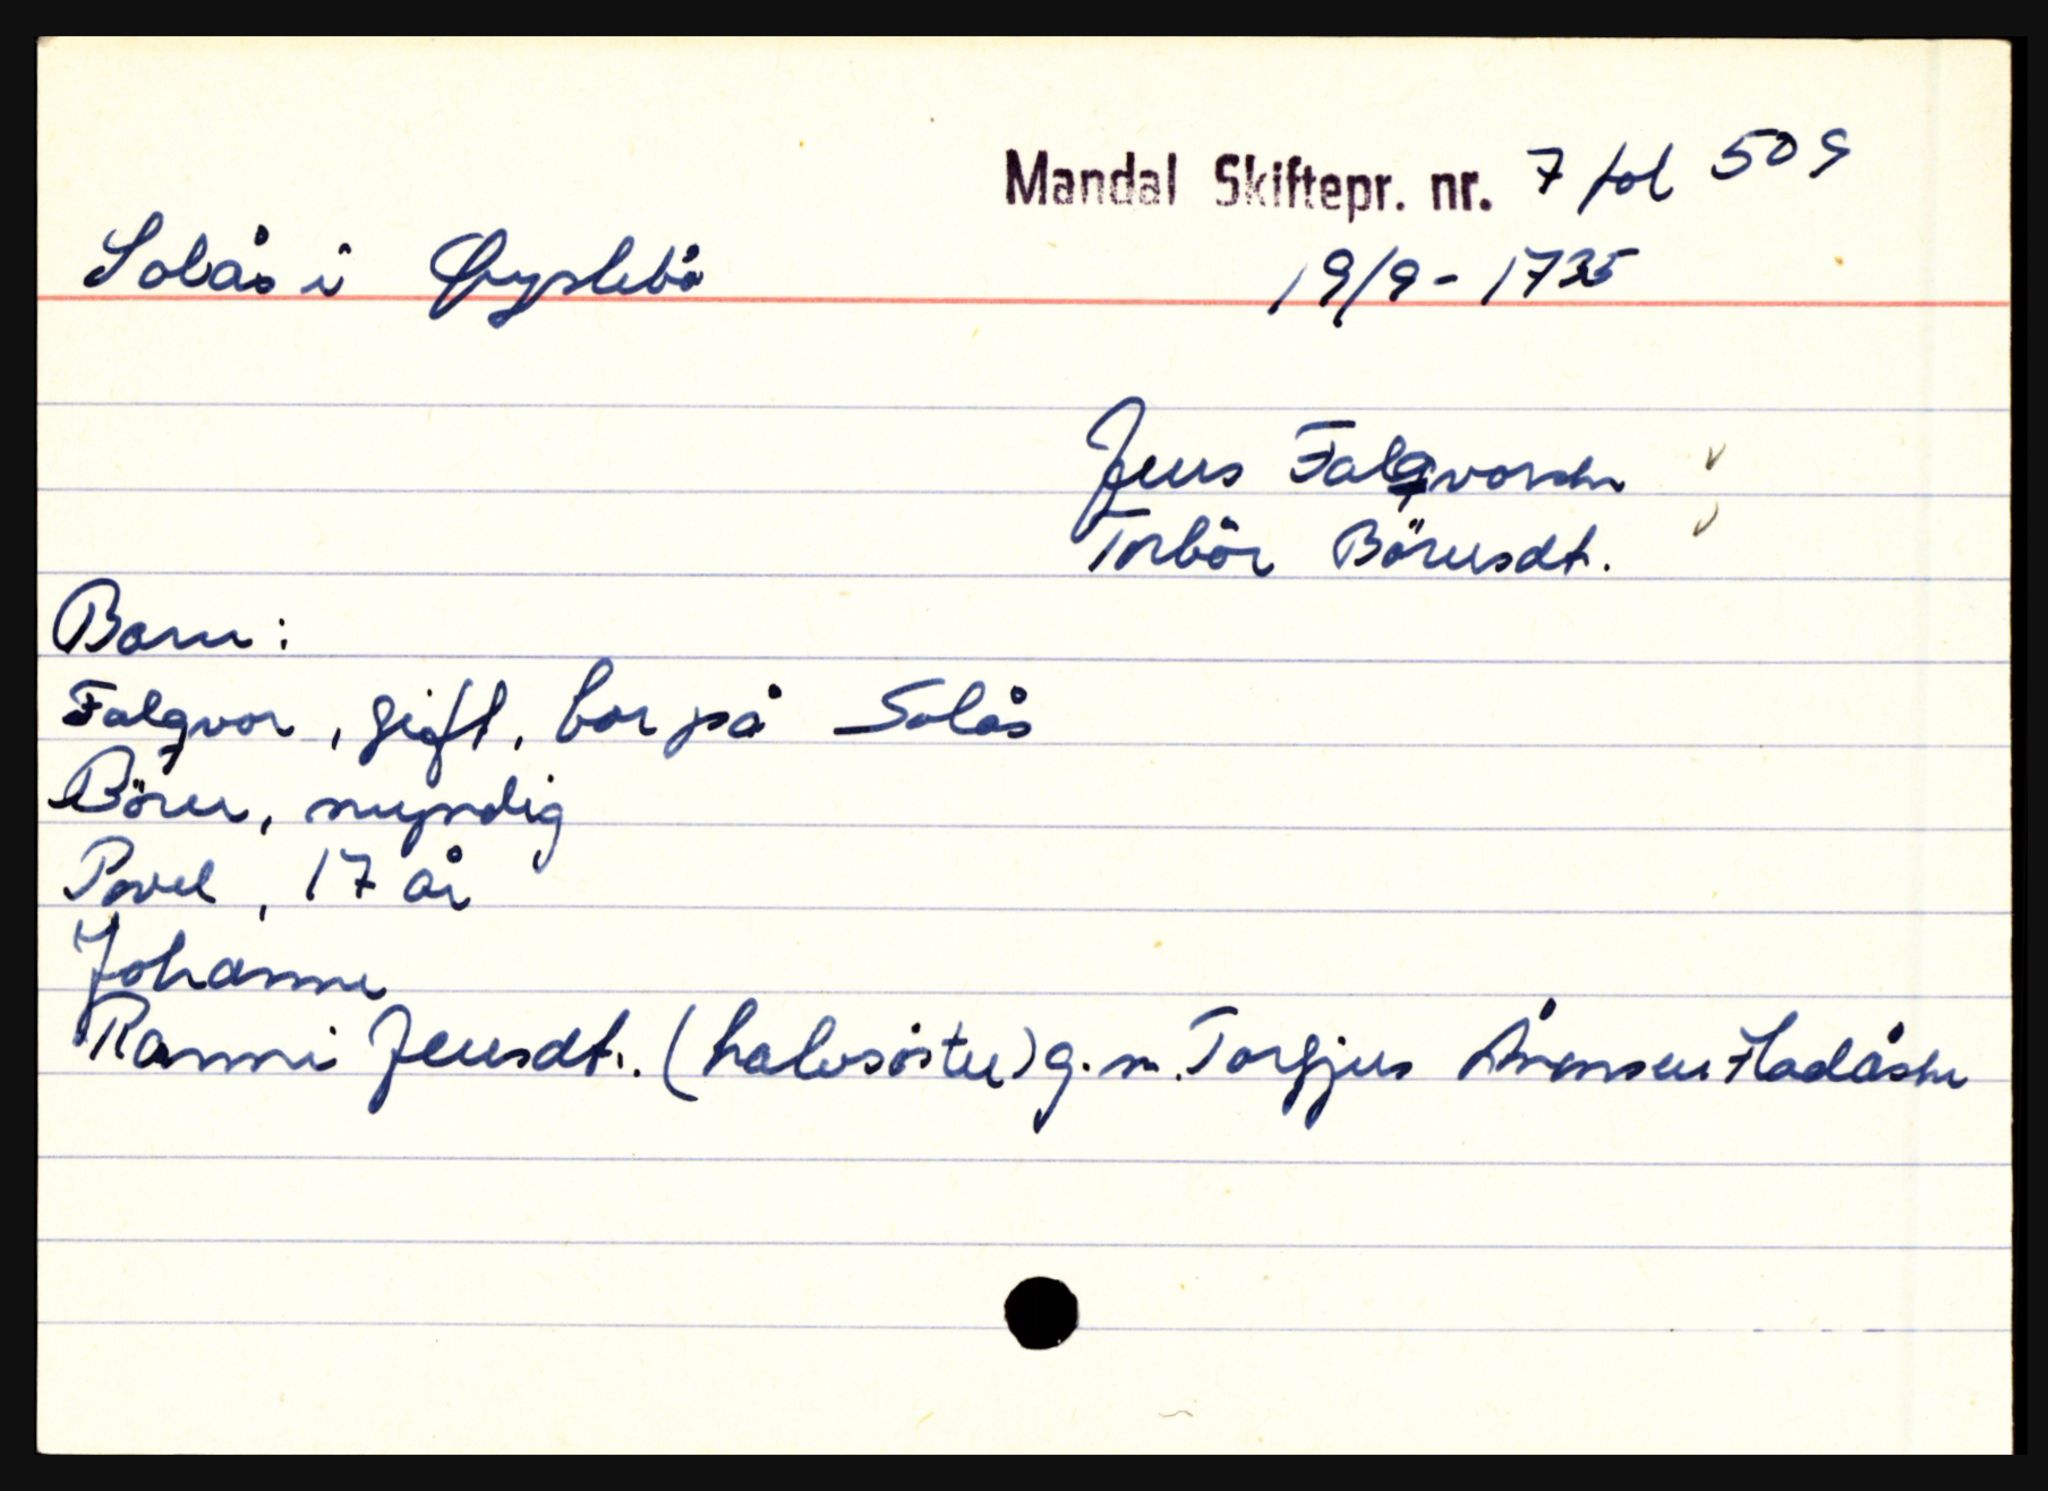 Mandal Skiftepr. nr. 7 fol 509
Solås i Øyslebö
19/9 - 1735
Jens Falqvorsen
Torbör Börusdt.
Barn:
Falqvor, gift, bor på Solås
Böru, myndig
Povel, 17 år
Johanne
Ranni Jensdt. (halvsöster) g.m. Torgjus Ånensen Hadåsen